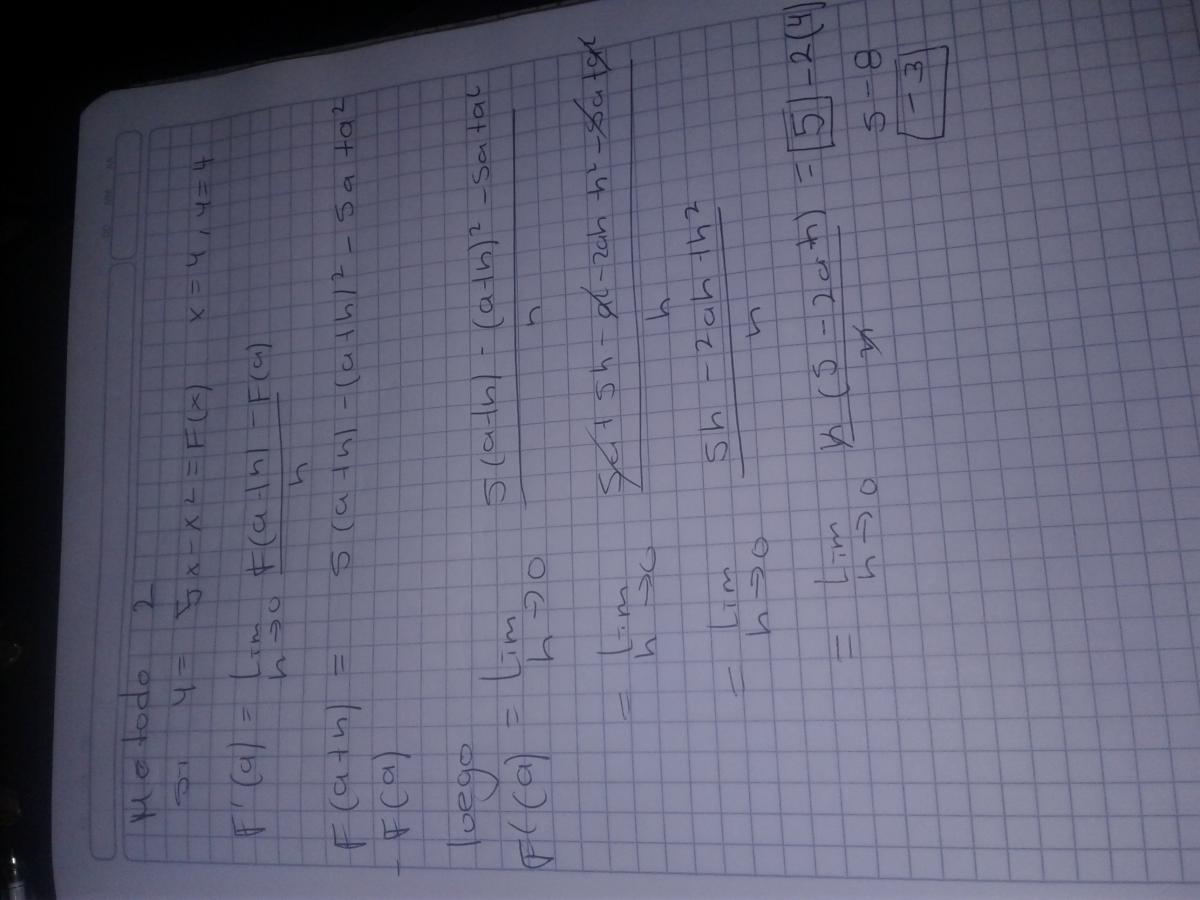 Metodo 2
Si y = 5x - x² = F(x) x = 4, y = 4
F'(a) = Lim h→0 F(a+h) - F(a) / h
F(a+h) - F(a) = 5(a+h) - (a+h)² - 5a + a²
luego
F'(a) = Lim h→0 5(a+h) - (a+h)² - 5a + a² / h
= Lim h→0 5a + 5h - a² - 2ah + h² - 5a + a² / h
= Lim h→0 5h - 2ah + h² / h
= Lim h→0 h(5 - 2a + h) / h = 5 - 2(4)
5 - 8
-3